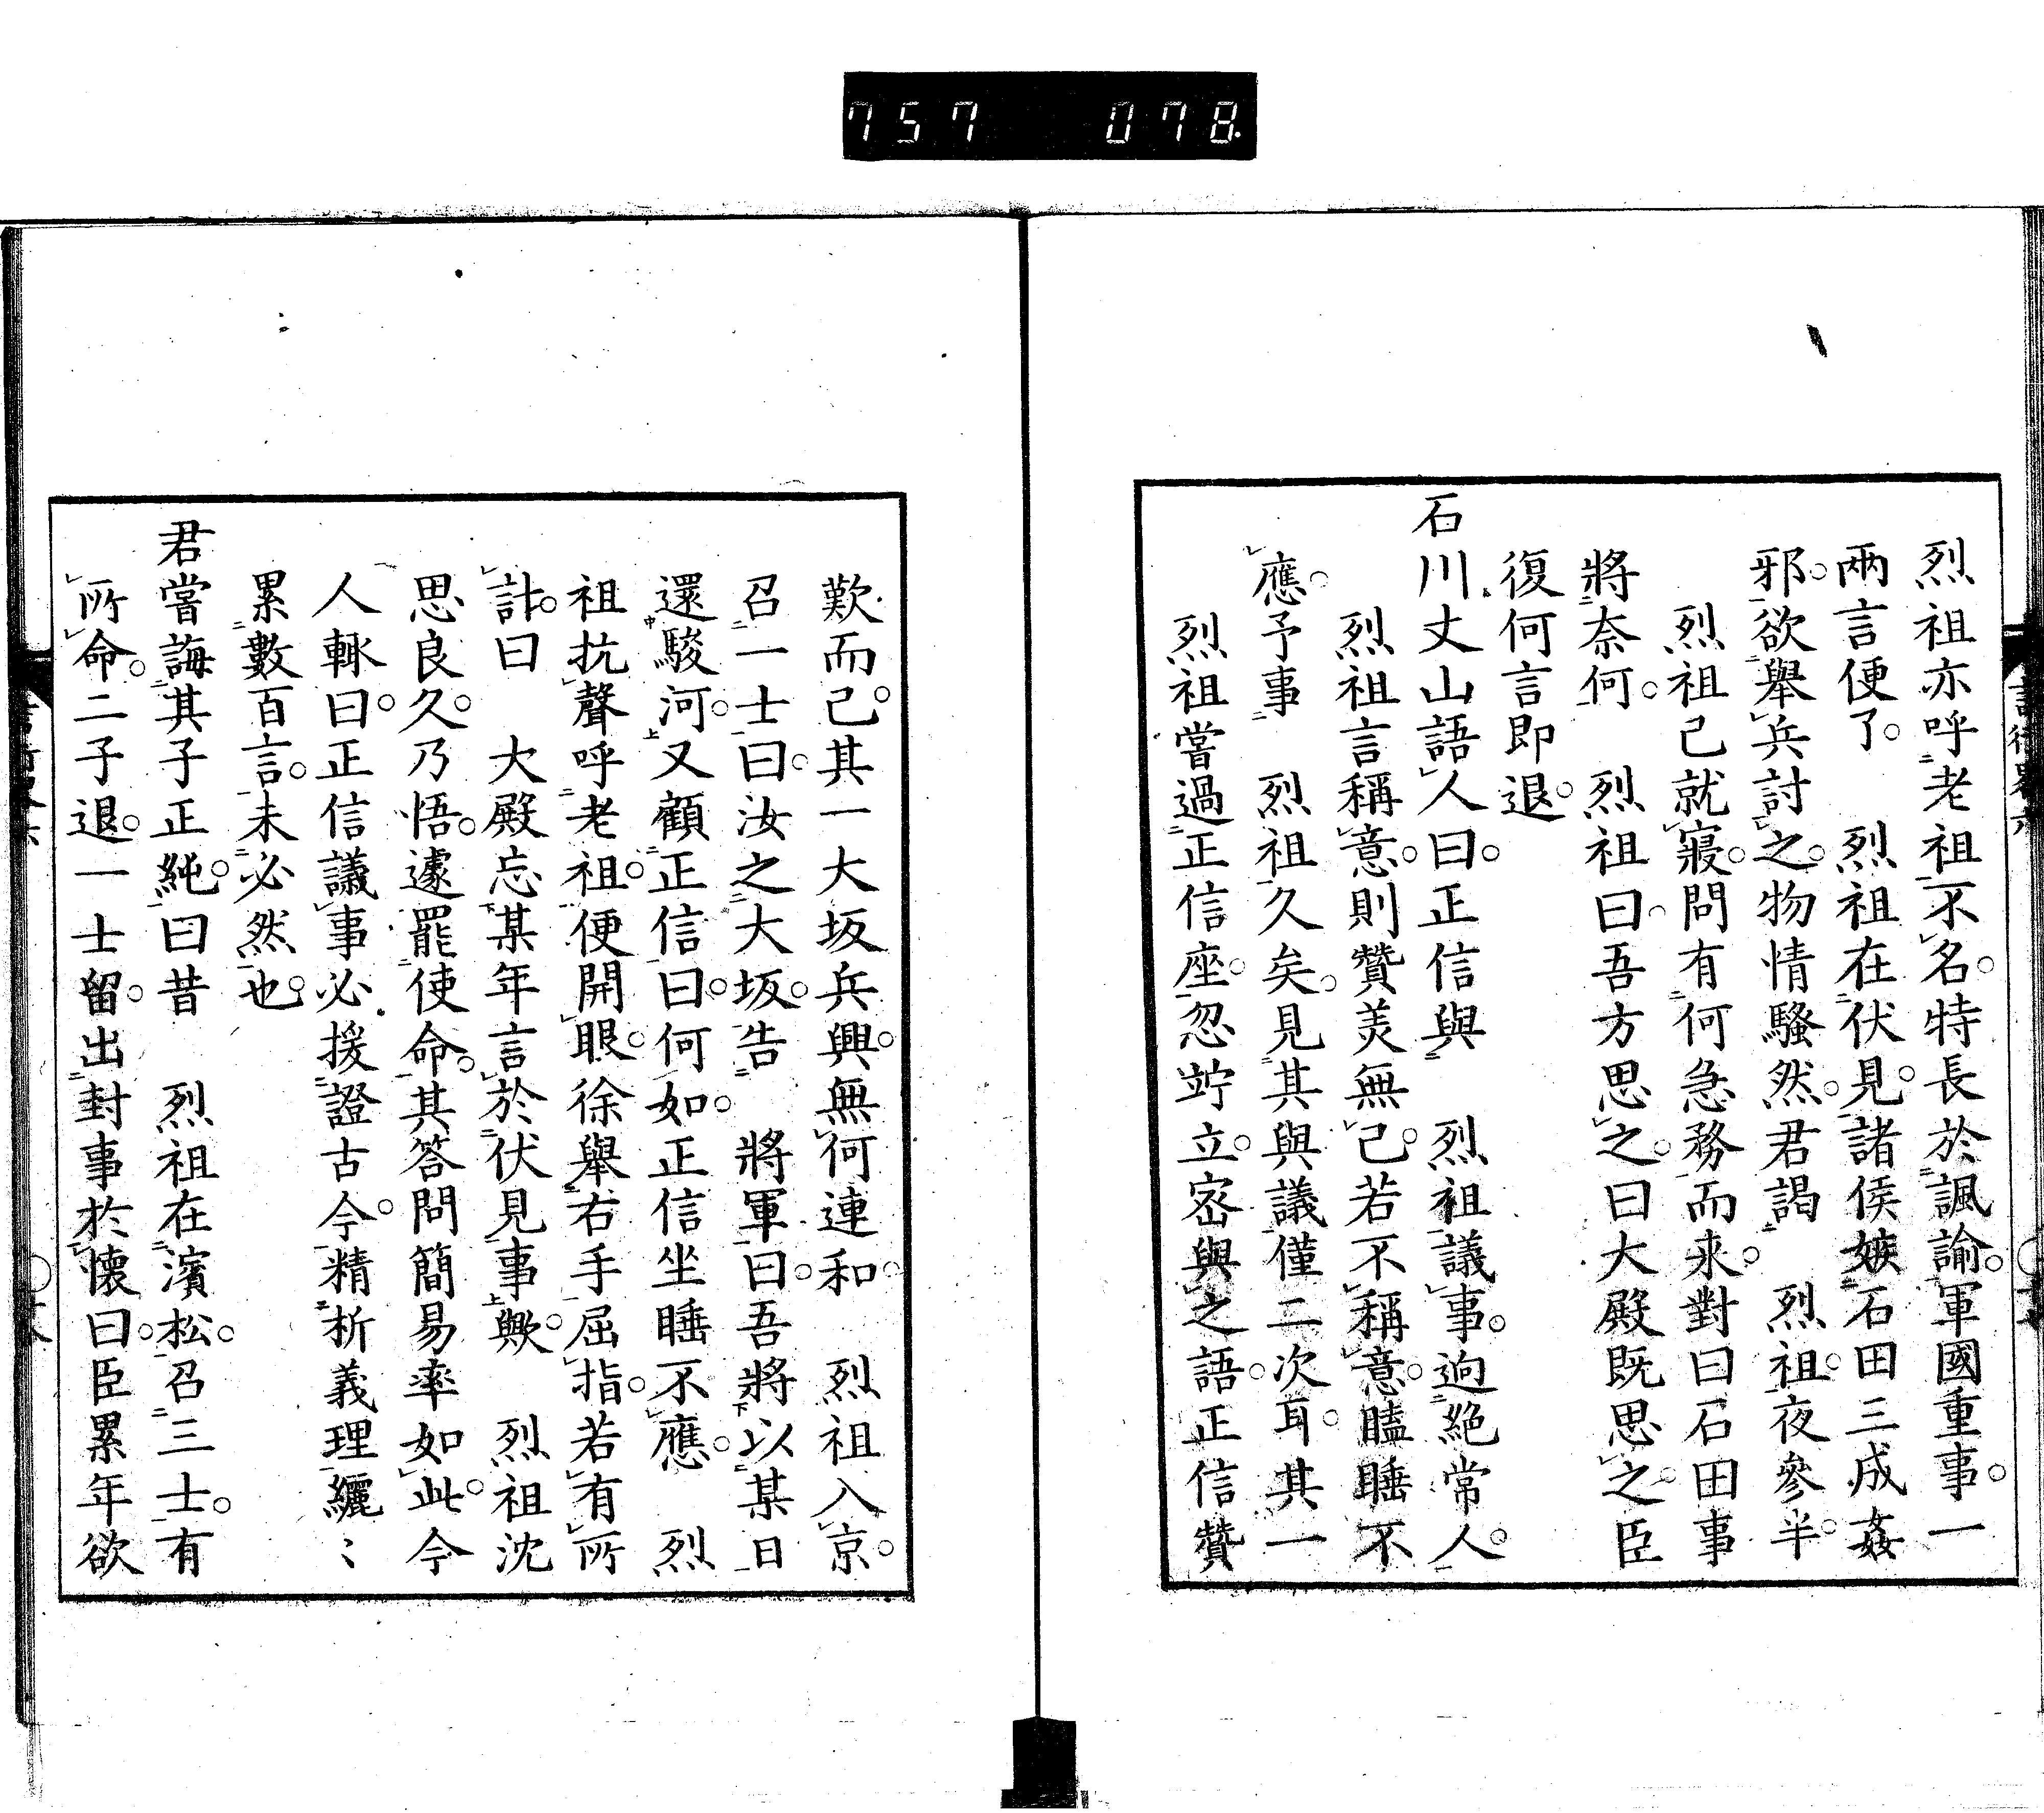 757 078
烈祖亦呼老祖不名。特長於諷諭。軍國重事。一
兩言便了。 烈祖在伏見。諸侯嫉石田三成姦
邪。欲舉兵討之。物情騷然。君謁 烈祖。夜參半。
烈祖已就寢。問有何急務而来。對曰石田事
將奈何。 烈祖曰。吾方思之。曰大殿既思之。臣
復何言即退。
石川丈山語人曰。正信與 烈祖議事。迥絕常人。
烈祖言稱意。則贊羙無已。若不稱意。瞌睡不
應。予事 烈祖久矣。見其與議僅二次耳。其一
烈祖嘗過正信座。忽竚立。密與之語。正信贊
歎而已。其一大坂兵興。無何連和。 烈祖入京。
召一士曰。汝之大坂。告 將軍曰。吾將以某日
還駿河。又顧正信曰。何如。正信坐睡不應。 烈
祖抗聲呼老祖。便開眼。徐舉右手屈指。若有所
計。曰 大殿忘某年言於伏見事歟。 烈祖沈
思良久。乃悟。遽罷使命。其答問簡易率如此。今
人輒曰。正信議事必援證古今。精析義理纚〻
累數百言。未必然也。
君嘗誨其子正純。曰昔 烈祖在濱松。召三士。有
所命。二子退。一士留。出封事於懐。曰。臣累年欲